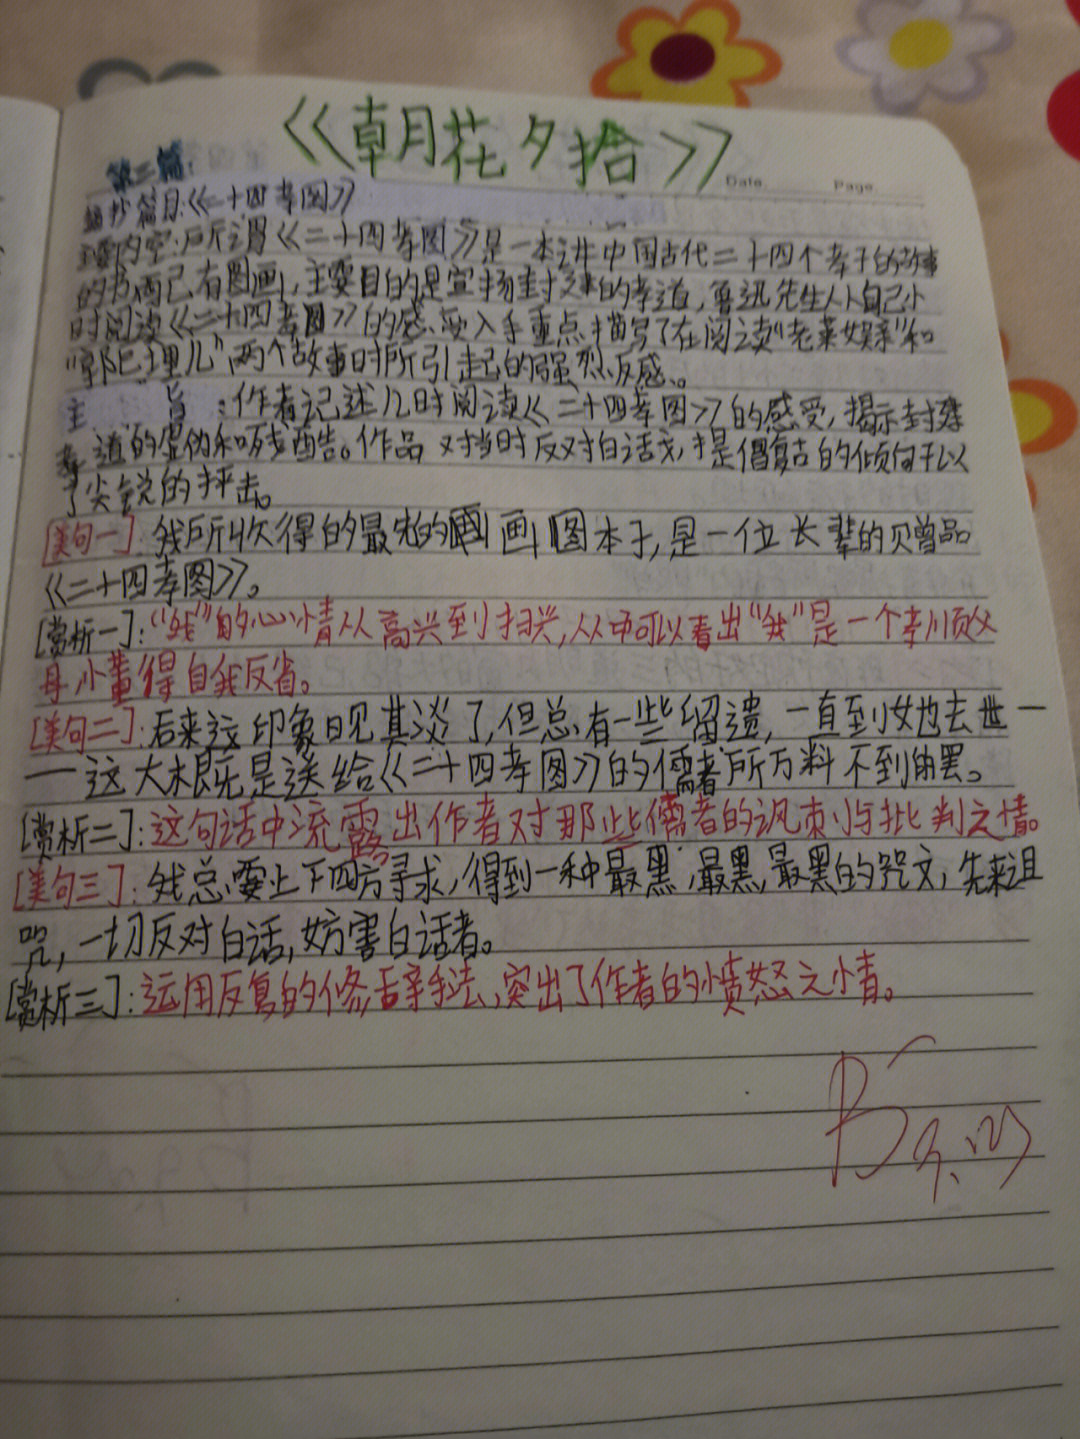 《朝花夕拾》
第三篇:
Date Page
摘抄篇目:《二十四孝图》
主要内容:所谓《二十四孝图》是一本讲中国古代二十四个孝子的故事
的书,配有图画,主要目的是宣扬封建的孝道,鲁迅先生从自己小
时阅读《二十四孝图》的感受入手重点描写了在阅读“老莱娱亲”和
“郭巴埋儿”两个故事时所引起的强烈反感。
主旨:作者记述儿时阅读《二十四孝图》的感受,揭示封建
孝道的虚伪和残酷。作品对当时反对白话文,提倡复古的倾向予以
了尖锐的抨击。
[美句一]:我所收得的最先的画图本子,是一位长辈的赠品
《二十四孝图》。
[赏析一]:“我”的心情从高兴到扫兴,从中可以看出“我”是一个孝顺父
母,小董得自我反省。
[美句二]:后来这印象日见其淡了,但总有一些留遗,一直到她去世一
一这大概是送给《二十四孝图》的儒者所万料不到的罢。
[赏析二]:这句话中流露出作者对那些儒者的讽刺与批判之情。
[美句三]:我总要上下四方寻求,得到一种最黑,最黑,最黑的咒文,先来诅
咒,一切反对白话,妨害白话者。
[赏析三]:运用反复的修辞手法,突出了作者的愤怒之情。
B